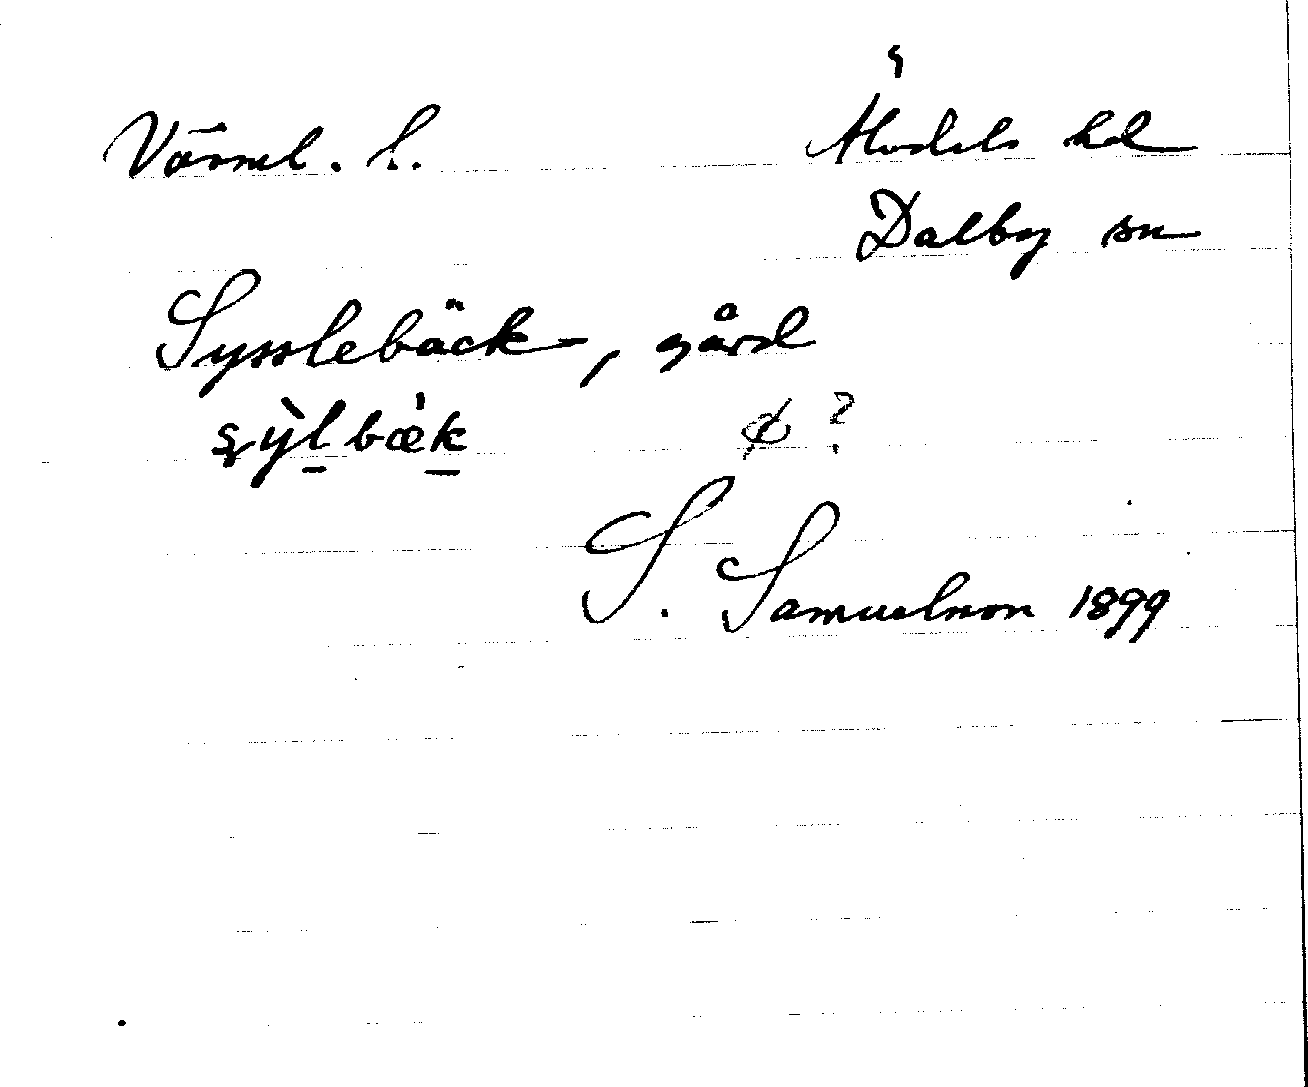 Värml. l. Älvdals hd
Dalby sn
Sysslebäck, gård
S. Samuelsson 1899